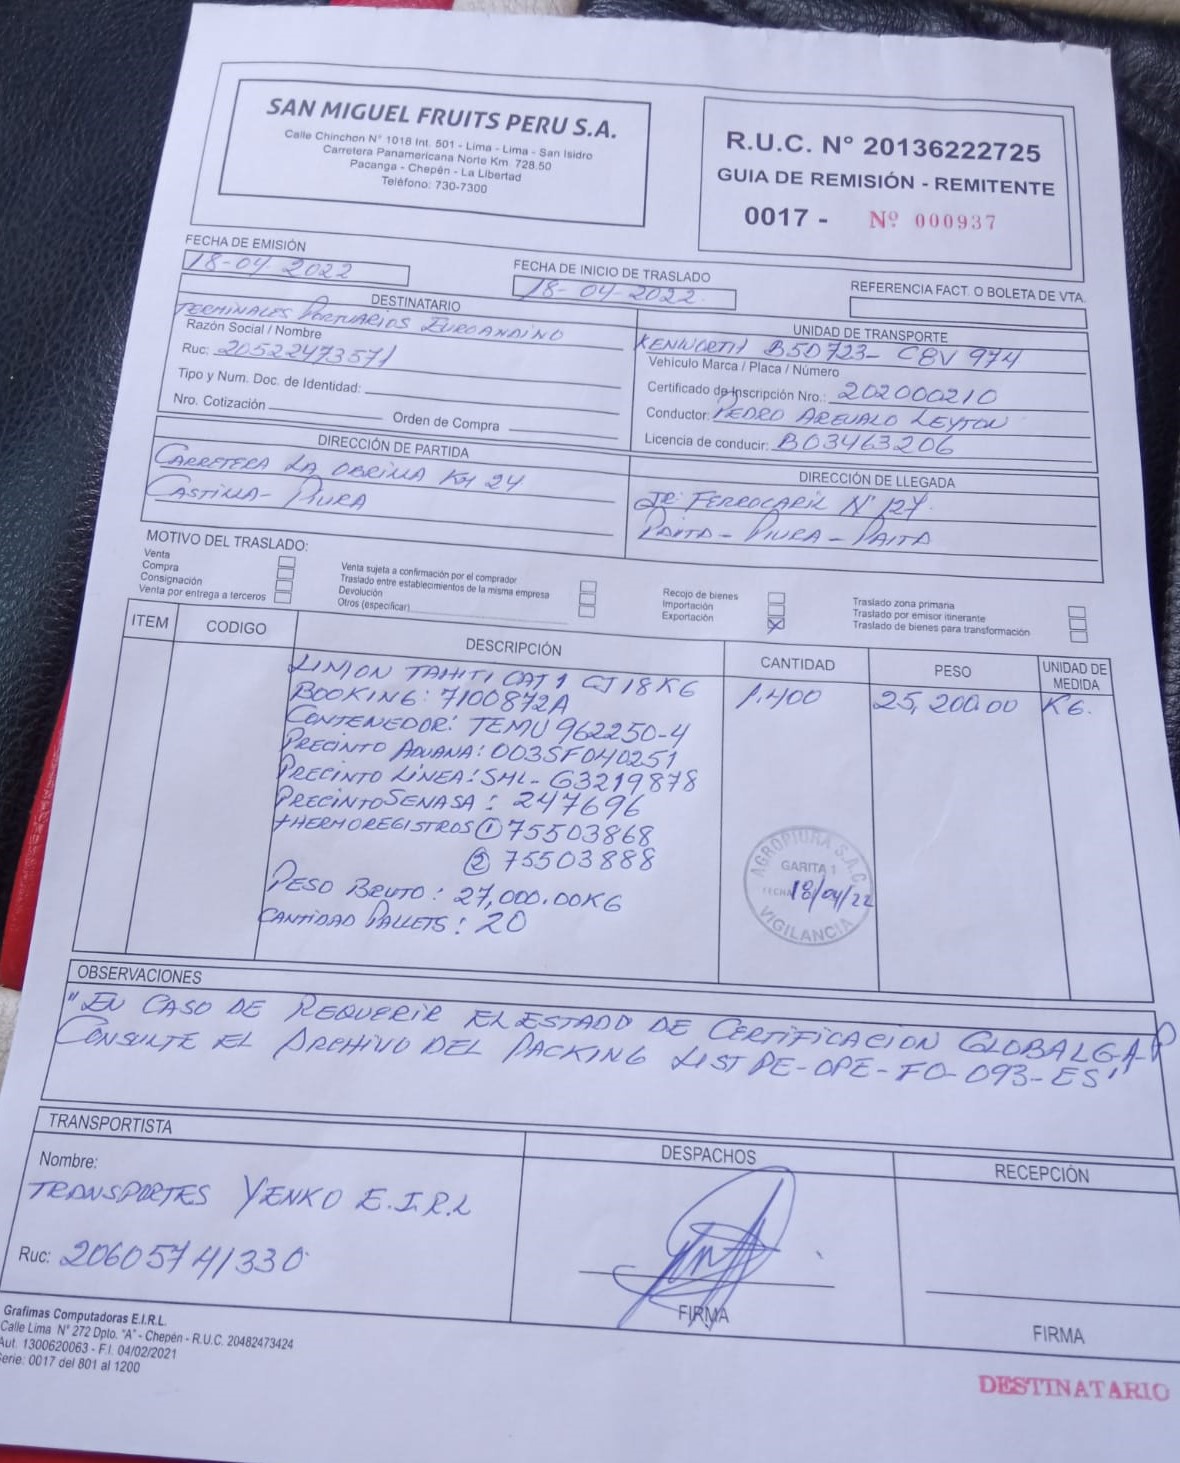 SAN MIGUEL FRUITS PERU S.A.
Calle Chinchon N° 1018 Int. 501 - Lima - Lima - San Isidro
Carretera Panamericana Norte Km. 728.50
Pacanga - Chepén - La Libertad
Teléfono: 730-7300
R.U.C. N° 20136222725
GUIA DE REMISIÓN - REMITENTE
0017 - Nº 000937
FECHA DE EMISIÓN
18-04-2022
FECHA DE INICIO DE TRASLADO
18-04-2022
REFERENCIA FACT. O BOLETA DE VTA.
DESTINATARIO
TERMINALES PORTUARIOS EUROANDINO
Razón Social / Nombre
Ruc: 20522473571
Tipo y Num. Doc. de Identidad:
Nro. Cotización Orden de Compra
UNIDAD DE TRANSPORTE
KENWORTH B5D723- C8V 974
Vehículo Marca / Placa / Número
Certificado de Inscripción Nro.: 202000210
Conductor: PEDRO AREVALO LEYTON
Licencia de conducir: B03463206
DIRECCIÓN DE PARTIDA
CARRETERA LA OBRILLA KM 24
CASTILLA- PIURA
DIRECCIÓN DE LLEGADA
JR: FERROCARIL N° 127
PAITA - PIURA - PAITA
MOTIVO DEL TRASLADO:
Venta
Compra
Consignación
Venta por entrega a terceros
Venta sujeta a confirmación por el comprador
Traslado entre establecimientos de la misma empresa
Devolución
Otros (especificar)
Recojo de bienes
Importación
Exportación X
Traslado zona primaria
Traslado por emisor itinerante
Traslado de bienes para transformación
ITEM CODIGO DESCRIPCIÓN CANTIDAD PESO UNIDAD DE MEDIDA
LIMON TAHITI CAT 1 CJ 18KG 1.400 25,200.00 KG.
BOOKING: 7100872A
CONTENEDOR: TEMU 962250-4
PRECINTO ADUANA: 003SF040251
PRECINTO LÍNEA: SML- G3219878
PRECINTO SENASA: 247696
THERMOREGISTROS ① 75503868
② 75503888
PESO BRUTO: 27,000.00KG
CANTIDAD PALLETS: 20
AGROPIURA S.A.C.
GARITA 1
FECHA 18/04/22
VIGILANCIA
OBSERVACIONES
"EN CASO DE REQUERIR EL ESTADO DE CERTIFICACION GLOBALGAP
CONSULTE EL ARCHIVO DEL PACKING LIST PE-OPE-FO-093-ES"
TRANSPORTISTA
Nombre:
TRANSPORTES YENKO E.I.R.L
Ruc: 20605741330
DESPACHOS
FIRMA
RECEPCIÓN
FIRMA
Grafimas Computadoras E.I.R.L.
Calle Lima N° 272 Dpto. "A" - Chepén - R.U.C. 20482473424
Aut. 1300620063 - F.I. 04/02/2021
Serie: 0017 del 801 al 1200
DESTINATARIO